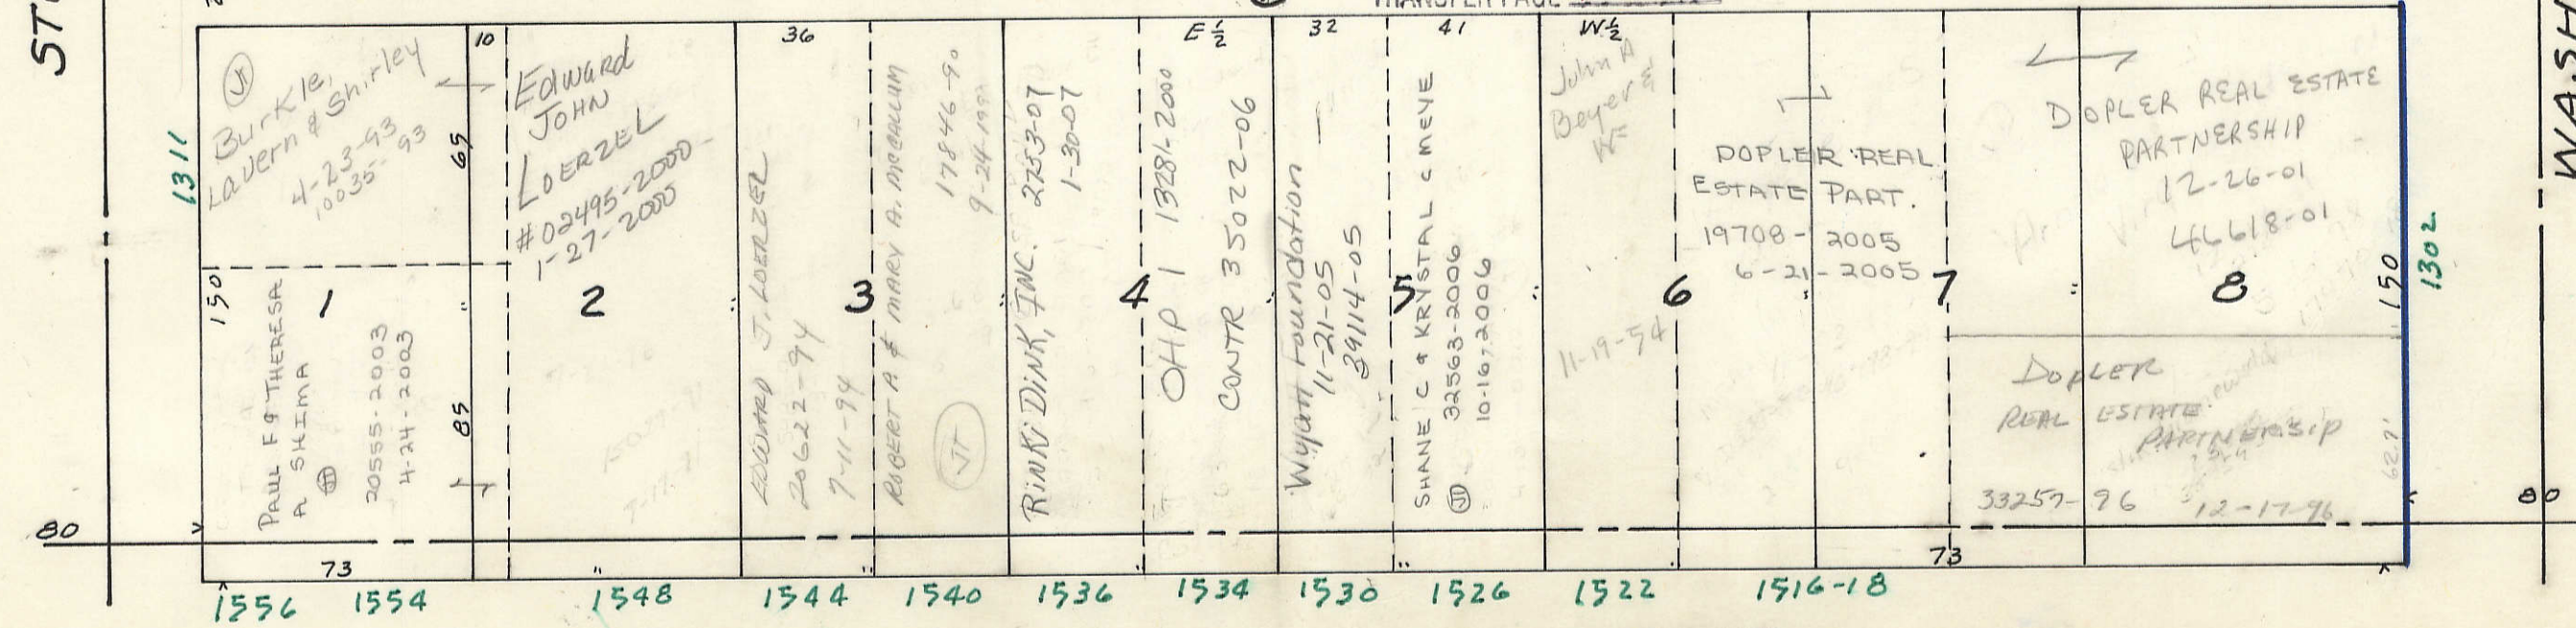 TRANSFER PAGE
10
36
E ½
32
41
W ½
JT
Burkle,
Lavern & Shirley
4-23-93
10035-93
65
1311
150
1
PAUL F & THERESA
A SHIMA
JT
20555-2003
4-24-2003
85
EDWARD
JOHN
LOERZEL
#02495-2000
1-27-2000
2
EDWARD J. LOERZEL
20622-94
7-11-94
3
ROBERT A & MARY A. McCALLUM
17846-90
JT
RINKI DINK, INC. 2753-07
1-30-07
4
OHP 1 13281-2000
CONTR 35022-06
Wyjan Foundation
11-21-05
39114-05
5
SHANE C & KRYSTAL C MEYE
JT 32563-2006
10-16-2006
John A
Beyer &
WF
11-19-54
6
DOPLER REAL
ESTATE PART.
19708-2005
6-21-2005
7
DOPLER REAL ESTATE
PARTNERSHIP
12-26-01
46618-01
8
150
1302
DOPLER
REAL ESTATE
PARTNERSIP
33257-96 12-17-96
62.7'
80
80
73
73
1556 1554 1548 1544 1540 1536 1534 1530 1526 1522 1516-18